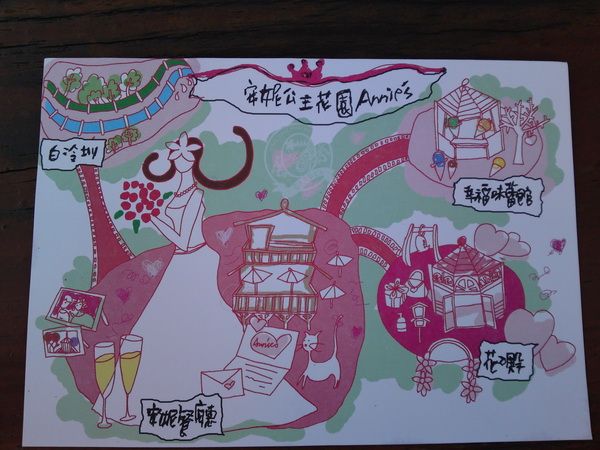 安妮公主花園Annie's
白冷圳
幸福味蕾館
Annie's
花の殿
安妮餐廳